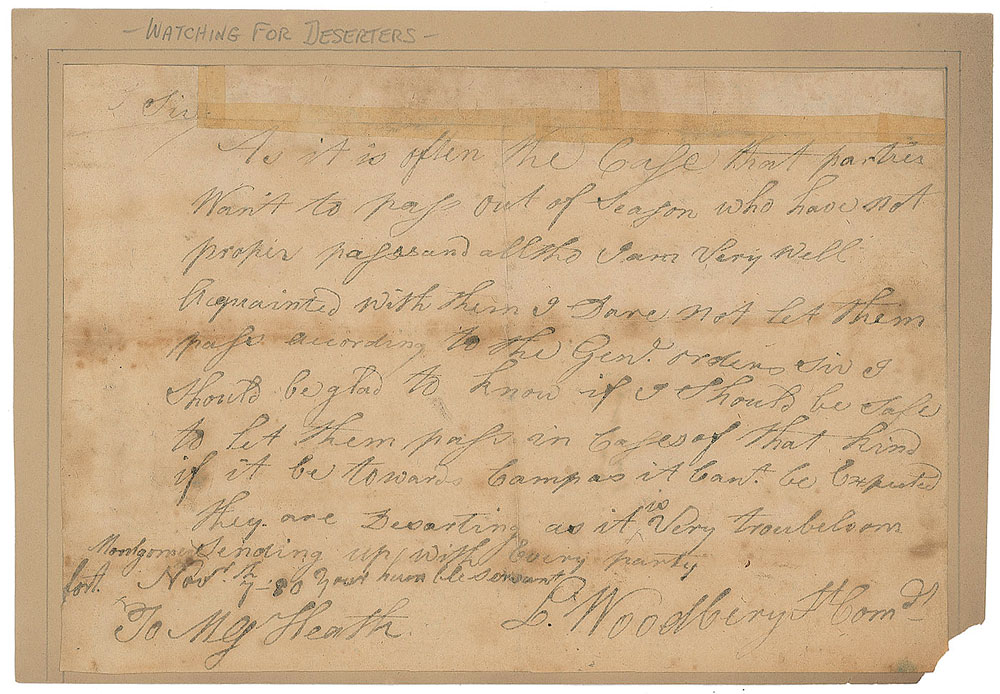 - WATCHING FOR DESERTERS -
Sir
As it is often the Case that parties
Want to pass out of Season who have not
proper passes and alltho I am Very Well
Acquainted with them I Dare not let them
pass according to the Genl. orders Sir I
Should be glad to know if I Should be Safe
to let them pass in Cases of that kind
if it be towards Camp as it Cant. be Expected
they are Desarting as it is Very troubelsom
Sending up with Every party
Montgomery
fort. Novr. 7th - 80 your humble servant
To MG Heath. L. Woodbery Lt Comdt